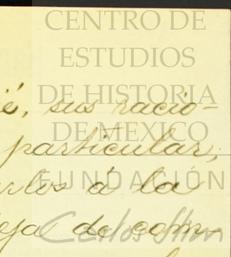 CENTRO DE
ESTUDIOS
DE HISTORIA
DE MÉXICO
FUNDACIÓN
Carlos Slim
é, sus racio-
particular,
á la
de com-